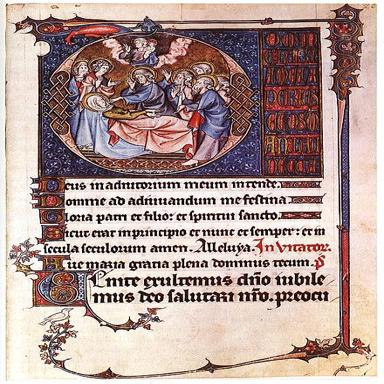 Deus in adiutorium meum intende.
Domine ad adiuuandum me festina
Gloria patri et filio: et spiritui sancto.
Sicut erat in principio et nunc et semper: et in
secula seculorum amen. Alleluya. Inuitator.
Aue maria gratia plena dominus tecum. p̄s
Uenite exultemus dn̄o iubile
mus deo salutari nr̄o. preocu